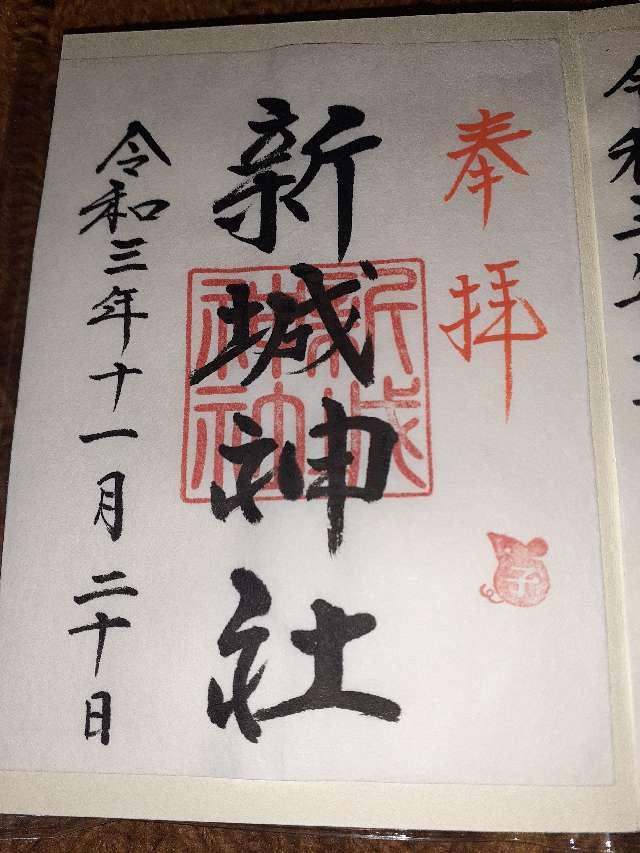 奉拝
子
新城神社
新城神社
令和三年十一月二十日
令和三年十